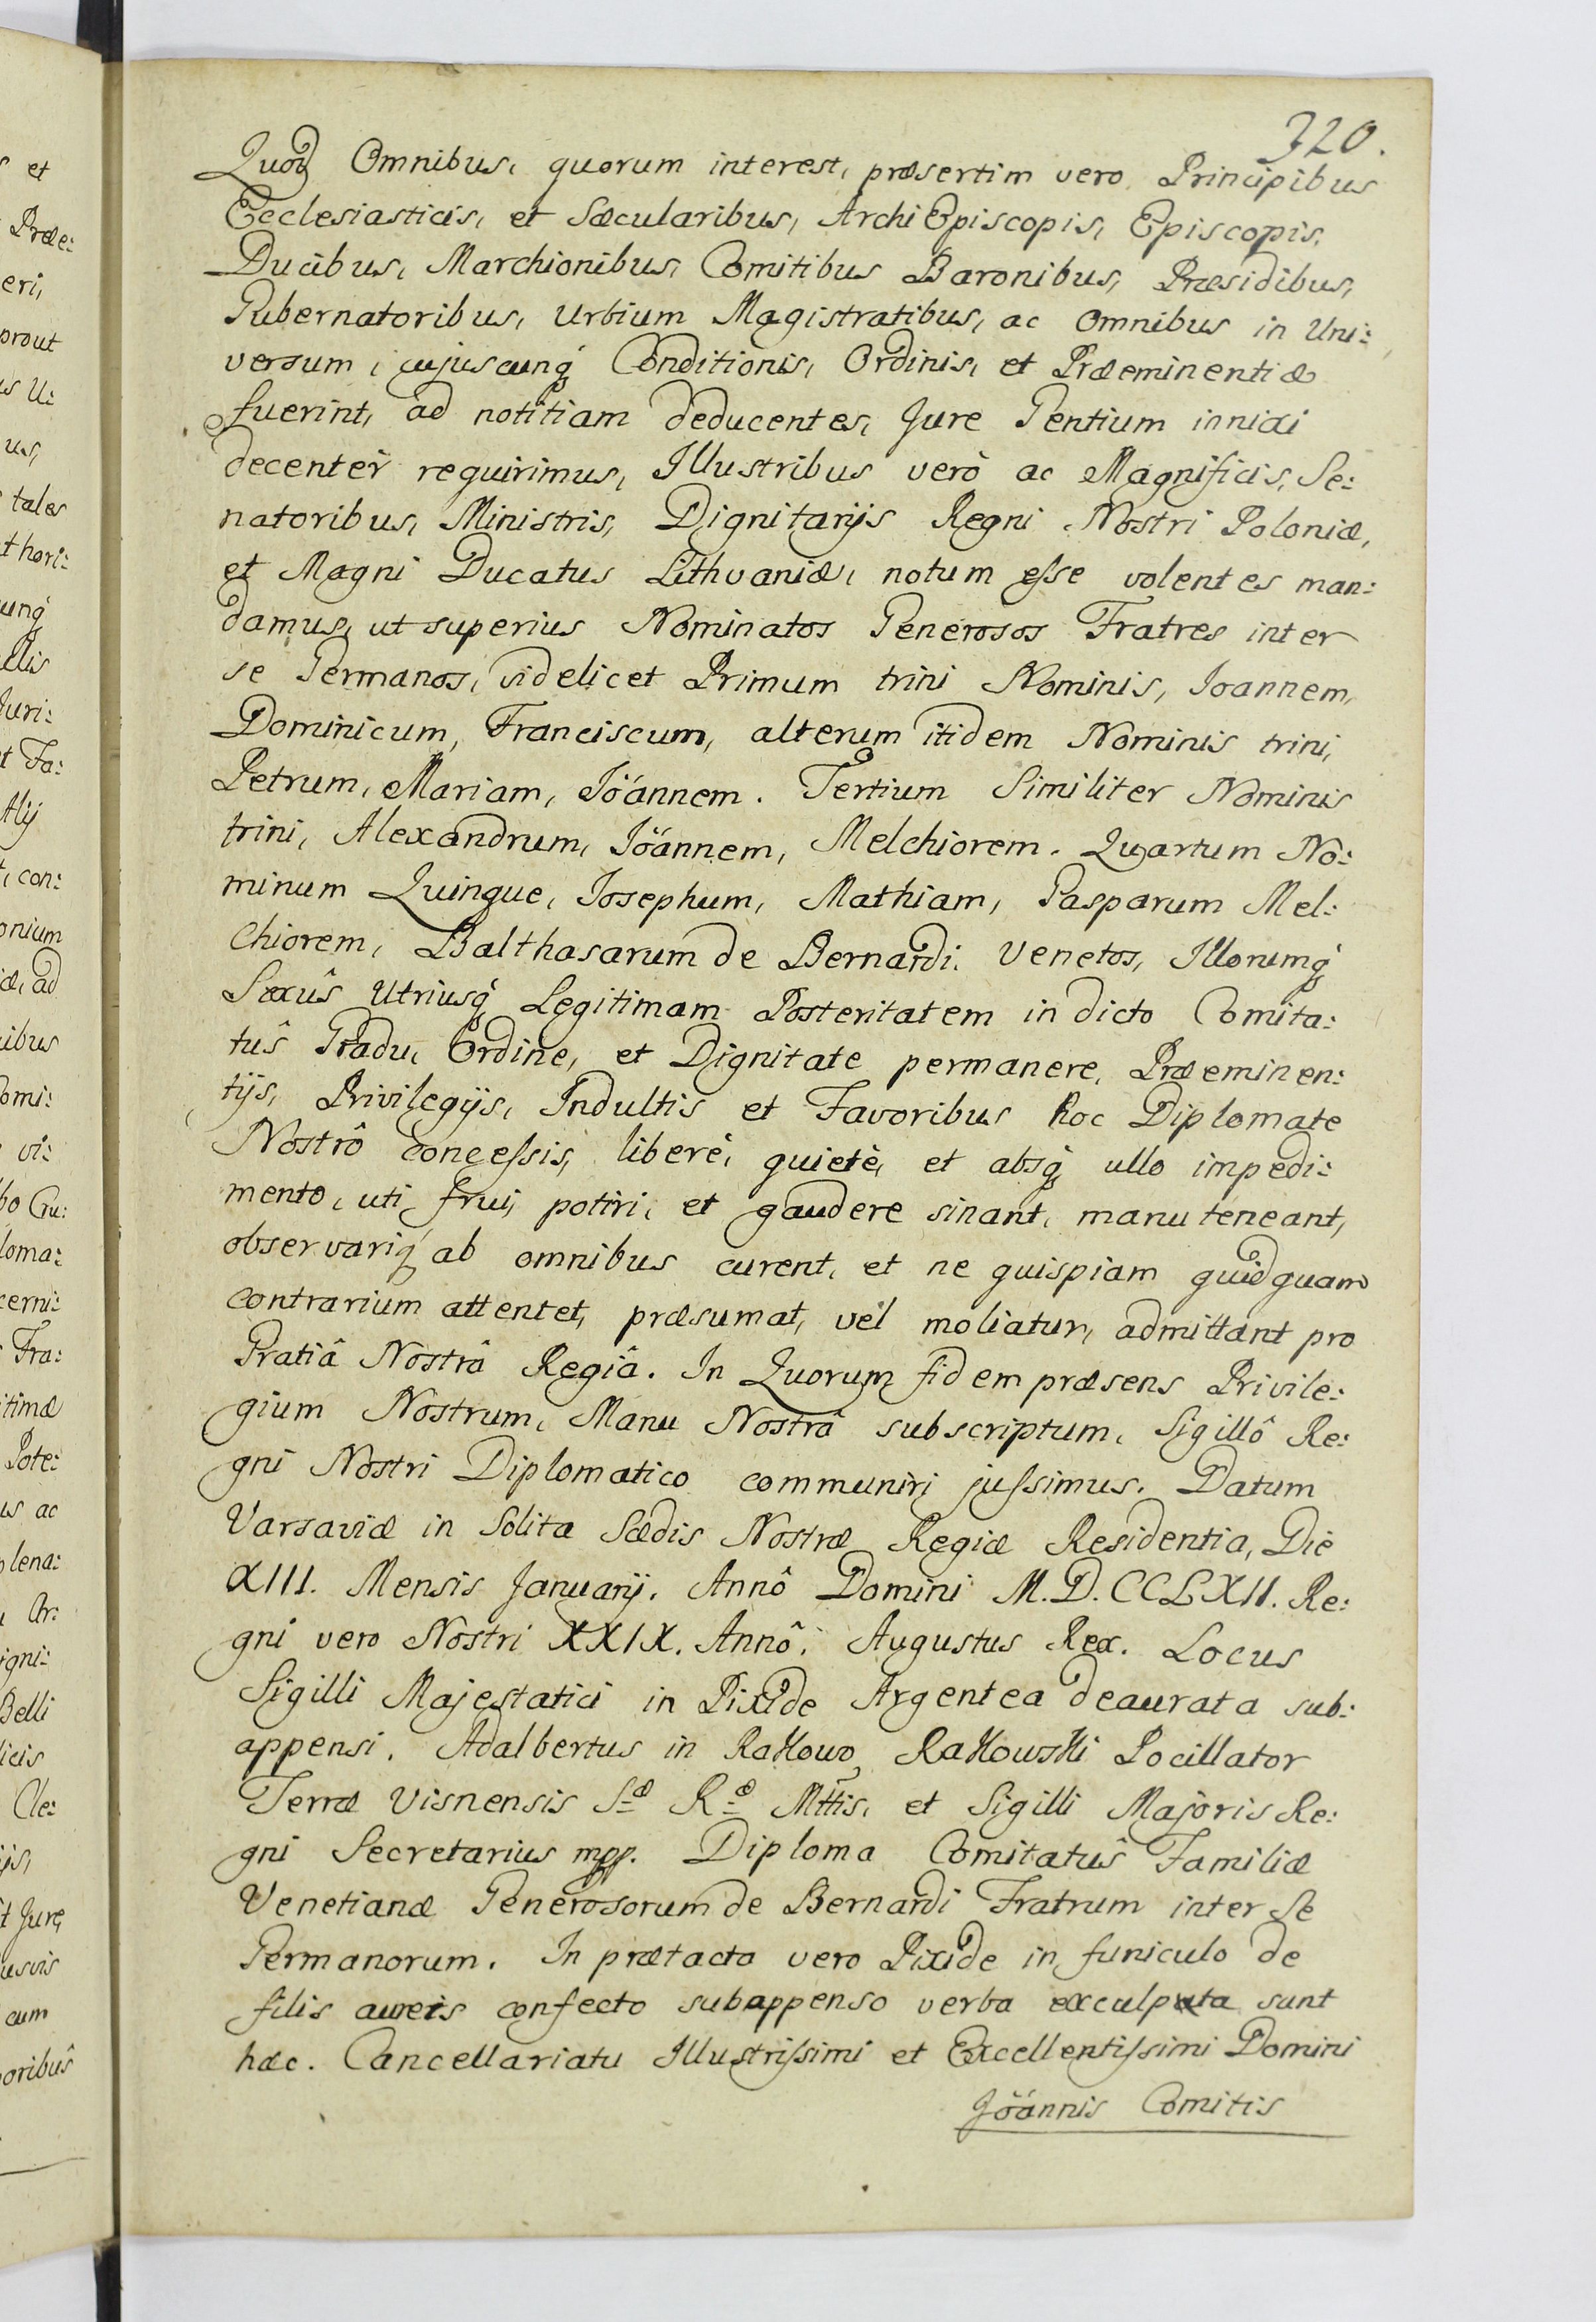 320.
Quod Omnibus, quorum interest, præsertim vero Principibus
Ecclesiasticis, et Sæcularibus, ArchiEpiscopis, Episcopis,
Ducibus, Marchionibus, Comitibus Baronibus, Præsidibus,
Gubernatoribus, Urbium Magistratibus, ac Omnibus in Uni:
versum, cujuscunq́ Conditionis, Ordinis, et Præeminentiæ
fuerint, ad notitiam deducentes, Jure Gentium innixi
decentèr requirimus, Illustribus verò ac Magnificis, Se:
natoribus, Ministris, Dignitarijs Regni Nostri Poloniæ,
et Magni Ducatus Lithvaniæ, notum eſse volentes man:
damus, ut superius Nominatos Generosos Fratres inter
se Germanos, videlicet Primum trini Nominis, Joannem,
Dominicum, Franciscum, alterum itidem Nominis trini,
Petrum, Mariam, Jöánnem. Tertium Similiter Nominis
trini, Alexandrum, Jöánnem, Melchiorem. Quartum No:
minum Quinque, Josephum, Mathiam, Gasparum Mel:
chiorem, Balthasarum de Bernardi. Venetos, Illorumq́
Sexûs Utriusq́ Legitimam Posteritatem in dicto Comita:
tûs Gradu, Ordine, et Dignitate permanere, Præeminen:
tijs, Privilegijs, Indultis et Favoribus hoc Diplomate
Nostrô conceſsis, liberè, quietè, et absq́ ullo impedi:
mento, uti frui, potiri, et gaudere sinant, manuteneant,
observariq́ ab omnibus curent, et ne quispiam quidquam
contrarium attentet, præsumat, vel moliatur, admittant pro
Gratiâ Nostrâ Regiâ. In Quorum fidem præsens Privile:
gium Nostrum, Manu Nostrâ subscriptum, Sigillô Re:
gni Nostri Diplomatico communiri juſsimus. Datum
Varsaviæ in Solita Sædis Nostræ Regiæ Residentia, Die
XIII. Mensis Januarij. Annô Domini M.D.CCLXII. Re:
gni vero Nostri XXIX. Annô. Augustus Rex. Locus
Sigilli Majestatici in Pixide Argentea deaurata sub:
appensi. Adalbertus in Rakowo Rakowski Pocillator
Terræ Visnensis Sæ Ræ Mttis, et Sigilli Majoris Re:
gni Secretarius mpp. Diploma Comitatûs Familiæ
Venetianæ Generosorum de Bernardi Fratrum inter Se
Germanorum. In prætacta vero Pixide in funiculo de
filis aureis confecto subappenso verba exculpta sunt
hæc. Cancellariatu Illustriſsimi et Excellentiſsimi Domini
Jöánnis Comitis
s et
Præ:
eri,
prout
us U:
us,
tales
thori:
unq́
ellis
Juri:
t Fa:
Alij
t, con:
onium
iæ, ad
ibus
omi:
vi:
bo Cru:
loma:
cerni:
Fra:
itimæ
Pote:
us ac
plena:
Ar:
igni:
Belli
icis
Cle:
ijs,
t Jure,
usvis
cum
oribuŝ